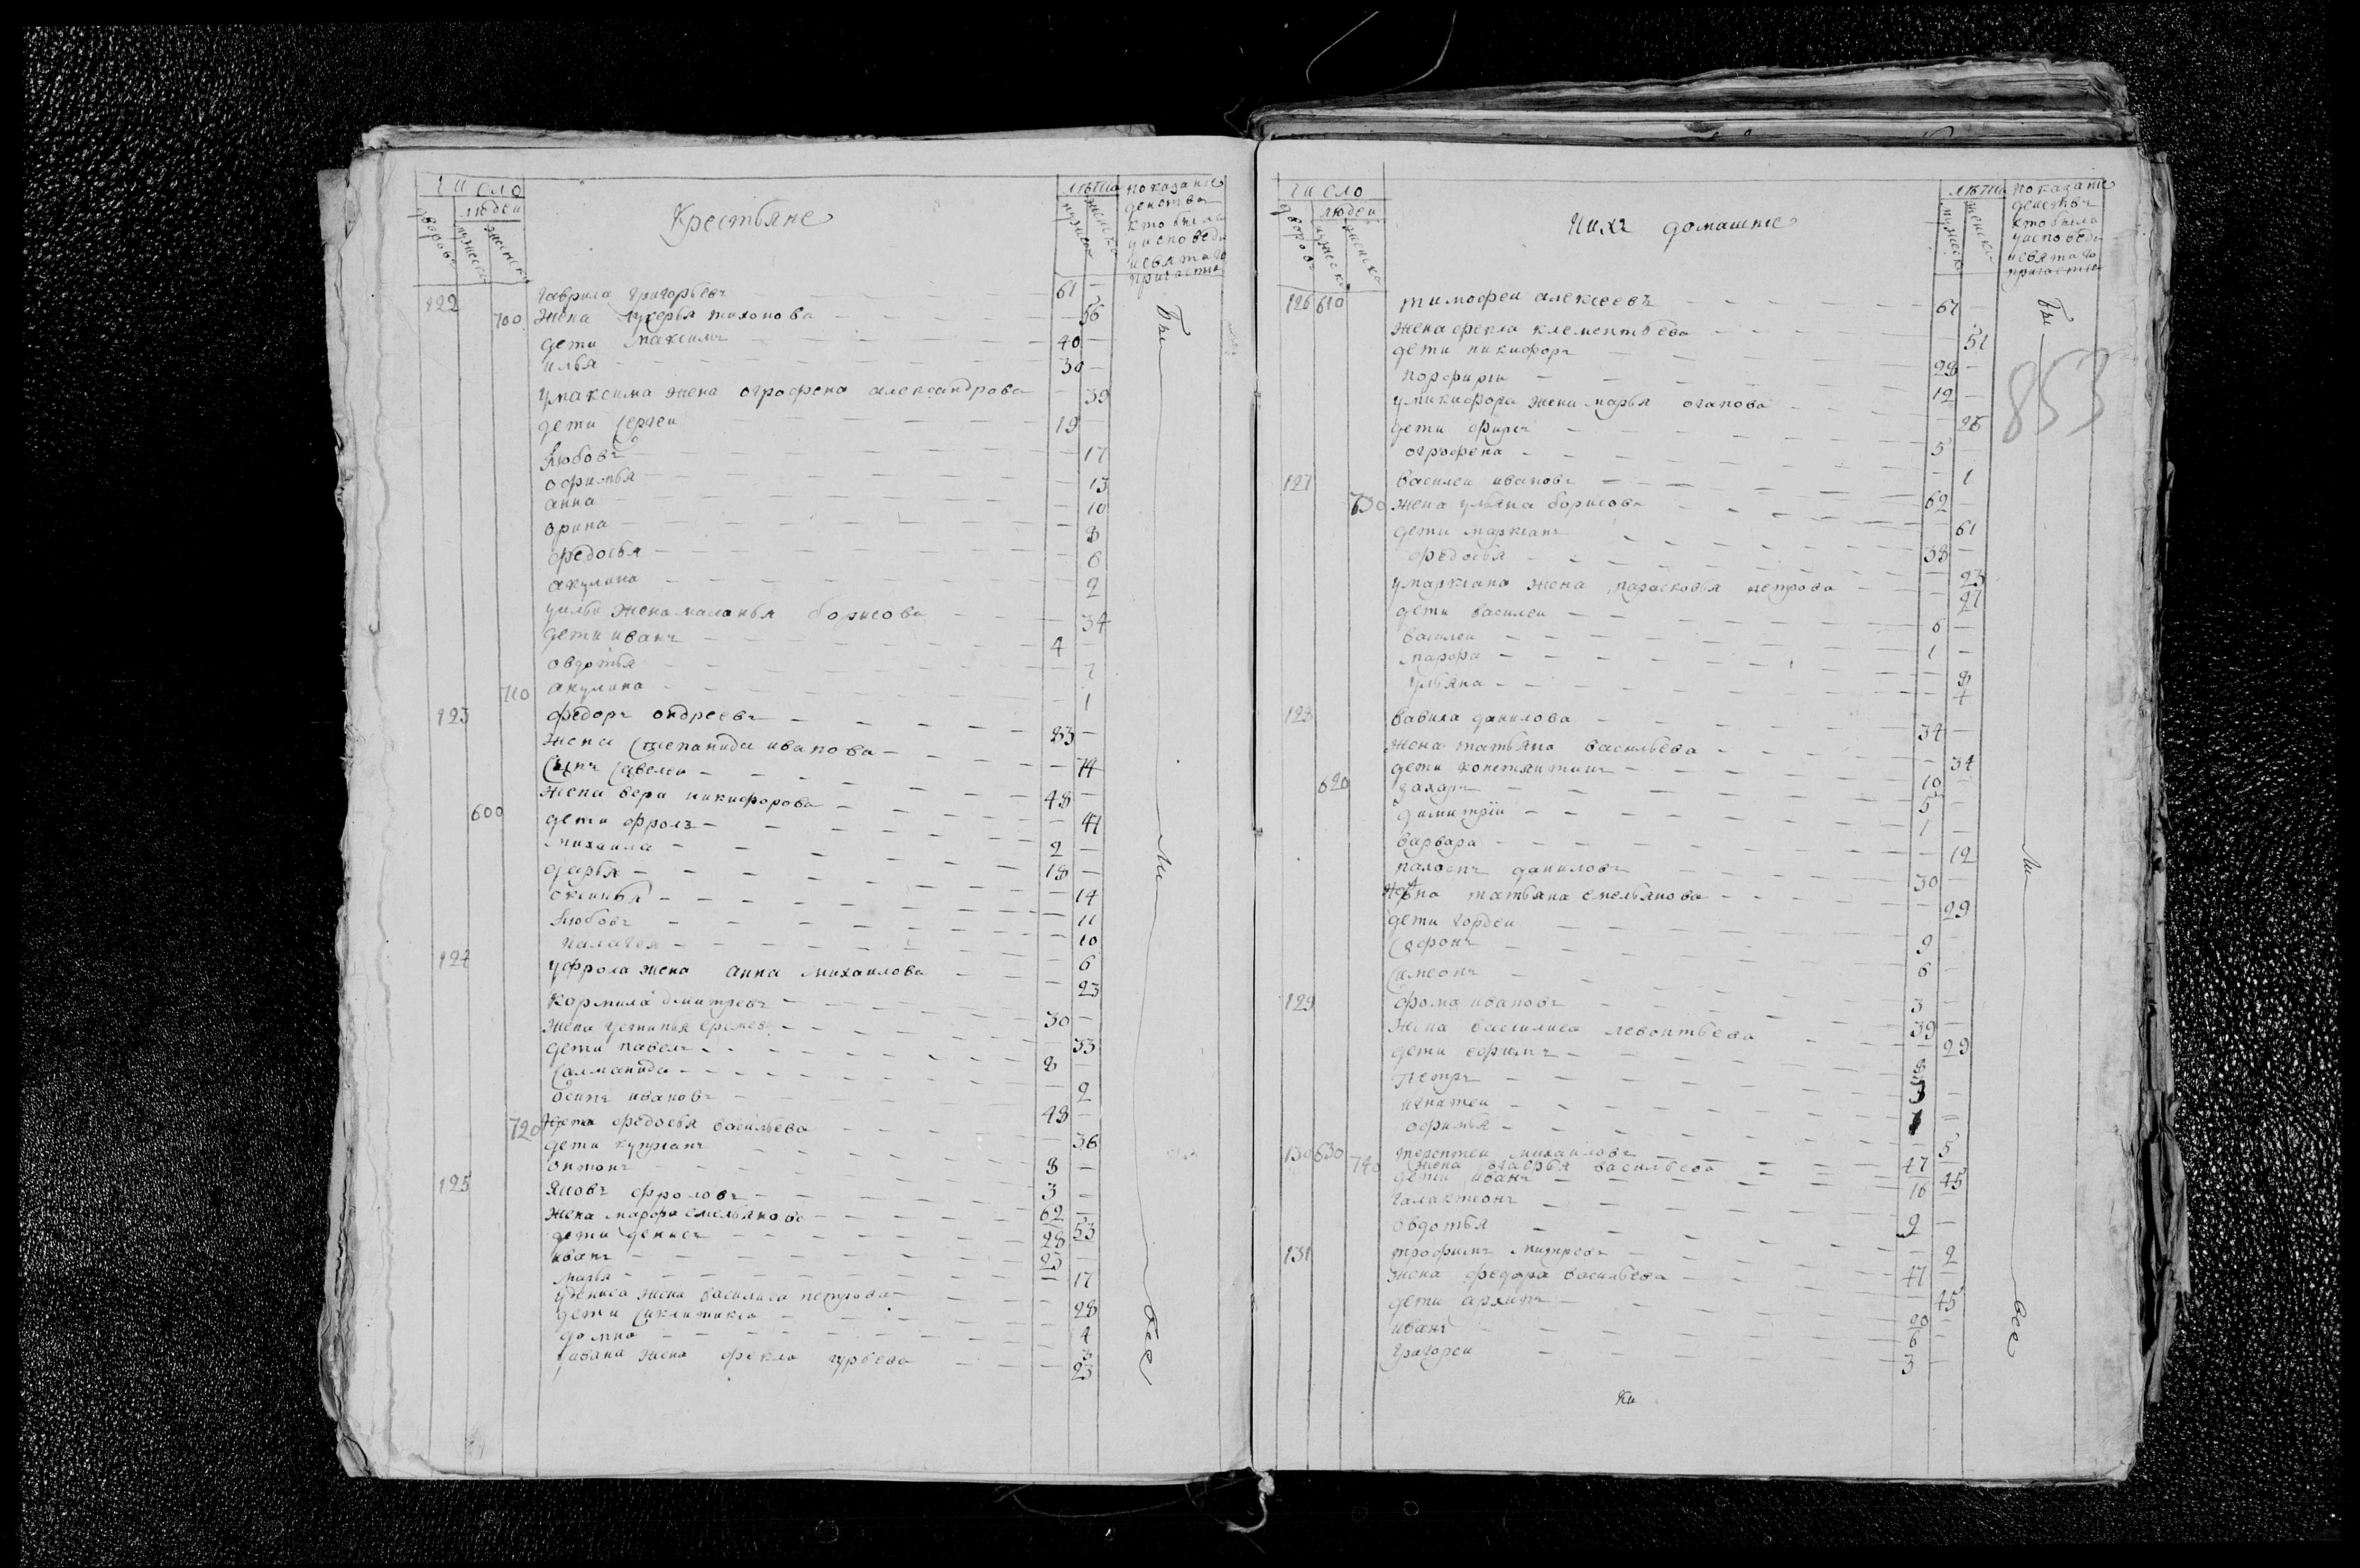 Число
людей
дворовъ
мужеска
женска
Крестьяне
лѣта
мужеска
женска
показание
действа
кто былъ
уисповеди
исвятаго
причастия
122 Гаврила Григорьевъ 61
700 жена лукерья тихонова 56
дети максимъ 40
илья 30
умаксима жена огрофена александрова 39
дети Сергеи 19
Любовъ 17
офимья 13
анна 10
орина 8
федосья 6
акулина 2
уильи жена маланья борисова 34
дети иванъ 4
овдотья 7
710 акулина 1
123 федоръ ондреевъ 83
жена Степанида иванова 74
Сынъ Савелеи 48
жена вера никифорова 47
600 дети фролъ 2
михаила 18
дарья 14
оксинья 11
Любовъ 10
палагея 6
124 уфрола жена анна михаилова 23
кормила дмитревъ 30
жена устинья еремева 33
дети павелъ 8
Саламанида 2
осипъ ивановъ 48
720 жена федосья васильева 36
дети куприанъ 8
онтонъ 3
125 яковъ фроловъ 62
жена марфа емельянова 53
дети денисъ 28
иванъ 23
марья 17
удениса жена василиса петрова 28
дети Сиклитикia 4
домна 3
уивана жена фекла гурьева 23
Бы ли все
Число
людей
дворовъ
мужеска
женска
Ихъ домашние
лѣта
мужеска
женска
показание
действъ
кто былъ
уисповеди
исвятаго
причастия
853
126 610 тимофеи алексеевъ 61
жена фекла клементьева 51
дети никифоръ 28
порфирiи 12
уникифора жена марья огапова 26
дети фирсъ 5
огрофена 1
127 василеи ивановъ 62
730 жена ульяна борисова 61
дети маркианъ 38
федосья 23
умаркiана жена парасковья петрова 27
дети василеи 6
василеи 1
марфа 8
ульяна 4
128 вавила данилова 34
жена татьяна васильева 34
дети констянтинъ 10
620 захаръ 5
димитрiи 1
варвара 12
даниловъ 30
жена татьяна емельянова 29
дети гордеи 9
Сафонъ 6
Симеонъ 3
129 фома ивановъ 39
жена василиса левонтьева 29
дети ефимъ 8
петръ
игнатеи
офимья 5
130 630 терентеи михаиловъ 47
740 жена васильева 45
дети иванъ 16
галактионъ 9
овдотья 2
131 трофимъ митревъ 47
жена федора васильева 45
дети архипъ 20
иванъ 6
григореи 3
Бы ли все
ки